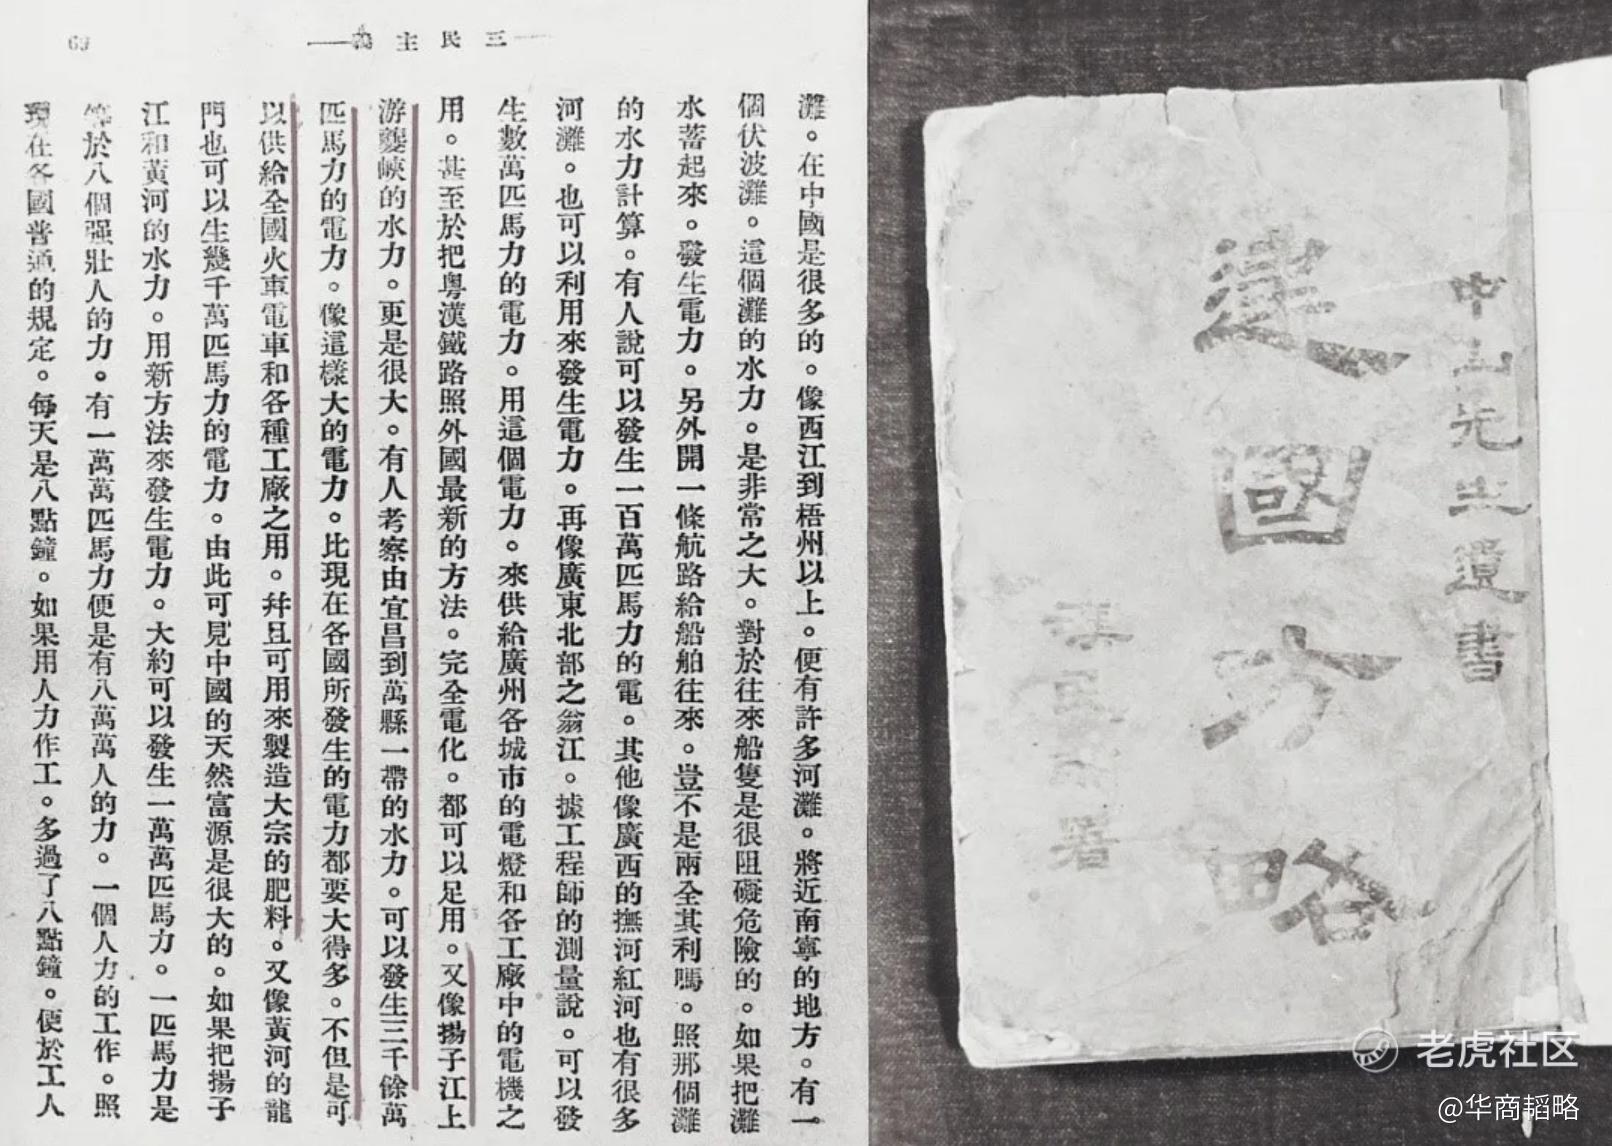 三民主義
69
灘。在中國是很多的。像西江到梧州以上。便有許多河灘。將近南寧的地方。有一
個伏波灘。這個灘的水力。是非常之大。對於往來船隻是很阻礙危險的。如果把灘
水蓄起來。發生電力。另外開一條航路給船舶往來。豈不是兩全其利嗎。照那個灘
的水力計算。有人說可以發生一百萬匹馬力的電。其他像廣西的撫河紅河也有很多
河灘。也可以利用來發生電力。再像廣東北部之翁江。據工程師的測量說。可以發
生數萬匹馬力的電力。用這個電力。來供給廣州各城市的電燈和各工廠中的電機之
用。甚至於把粵漢鐵路照外國最新的方法。完全電化。都可以足用。又像揚子江上
游夔峽的水力。更是很大。有人考察由宜昌到萬縣一帶的水力。可以發生三千餘萬
匹馬力的電力。像這樣大的電力。比現在各國所發生的電力都要大得多。不但是可
以供給全國火車電車和各種工廠之用。并且可用來製造大宗的肥料。又像黃河的龍
門也可以生幾千萬匹馬力的電力。由此可見中國的天然富源是很大的。如果把揚子
江和黃河的水力。用新方法來發生電力。大約可以發生一萬萬匹馬力。一匹馬力是
等於八個强壯人的力。有一萬萬匹馬力便是有八萬萬人的力。一個人力的工作。照
現在各國普通的規定。每天是八點鐘。如果用人力作工。多過了八點鐘。便於工人
中山先生遺書
建國方略
漢民署
老虎社区
@华商韬略